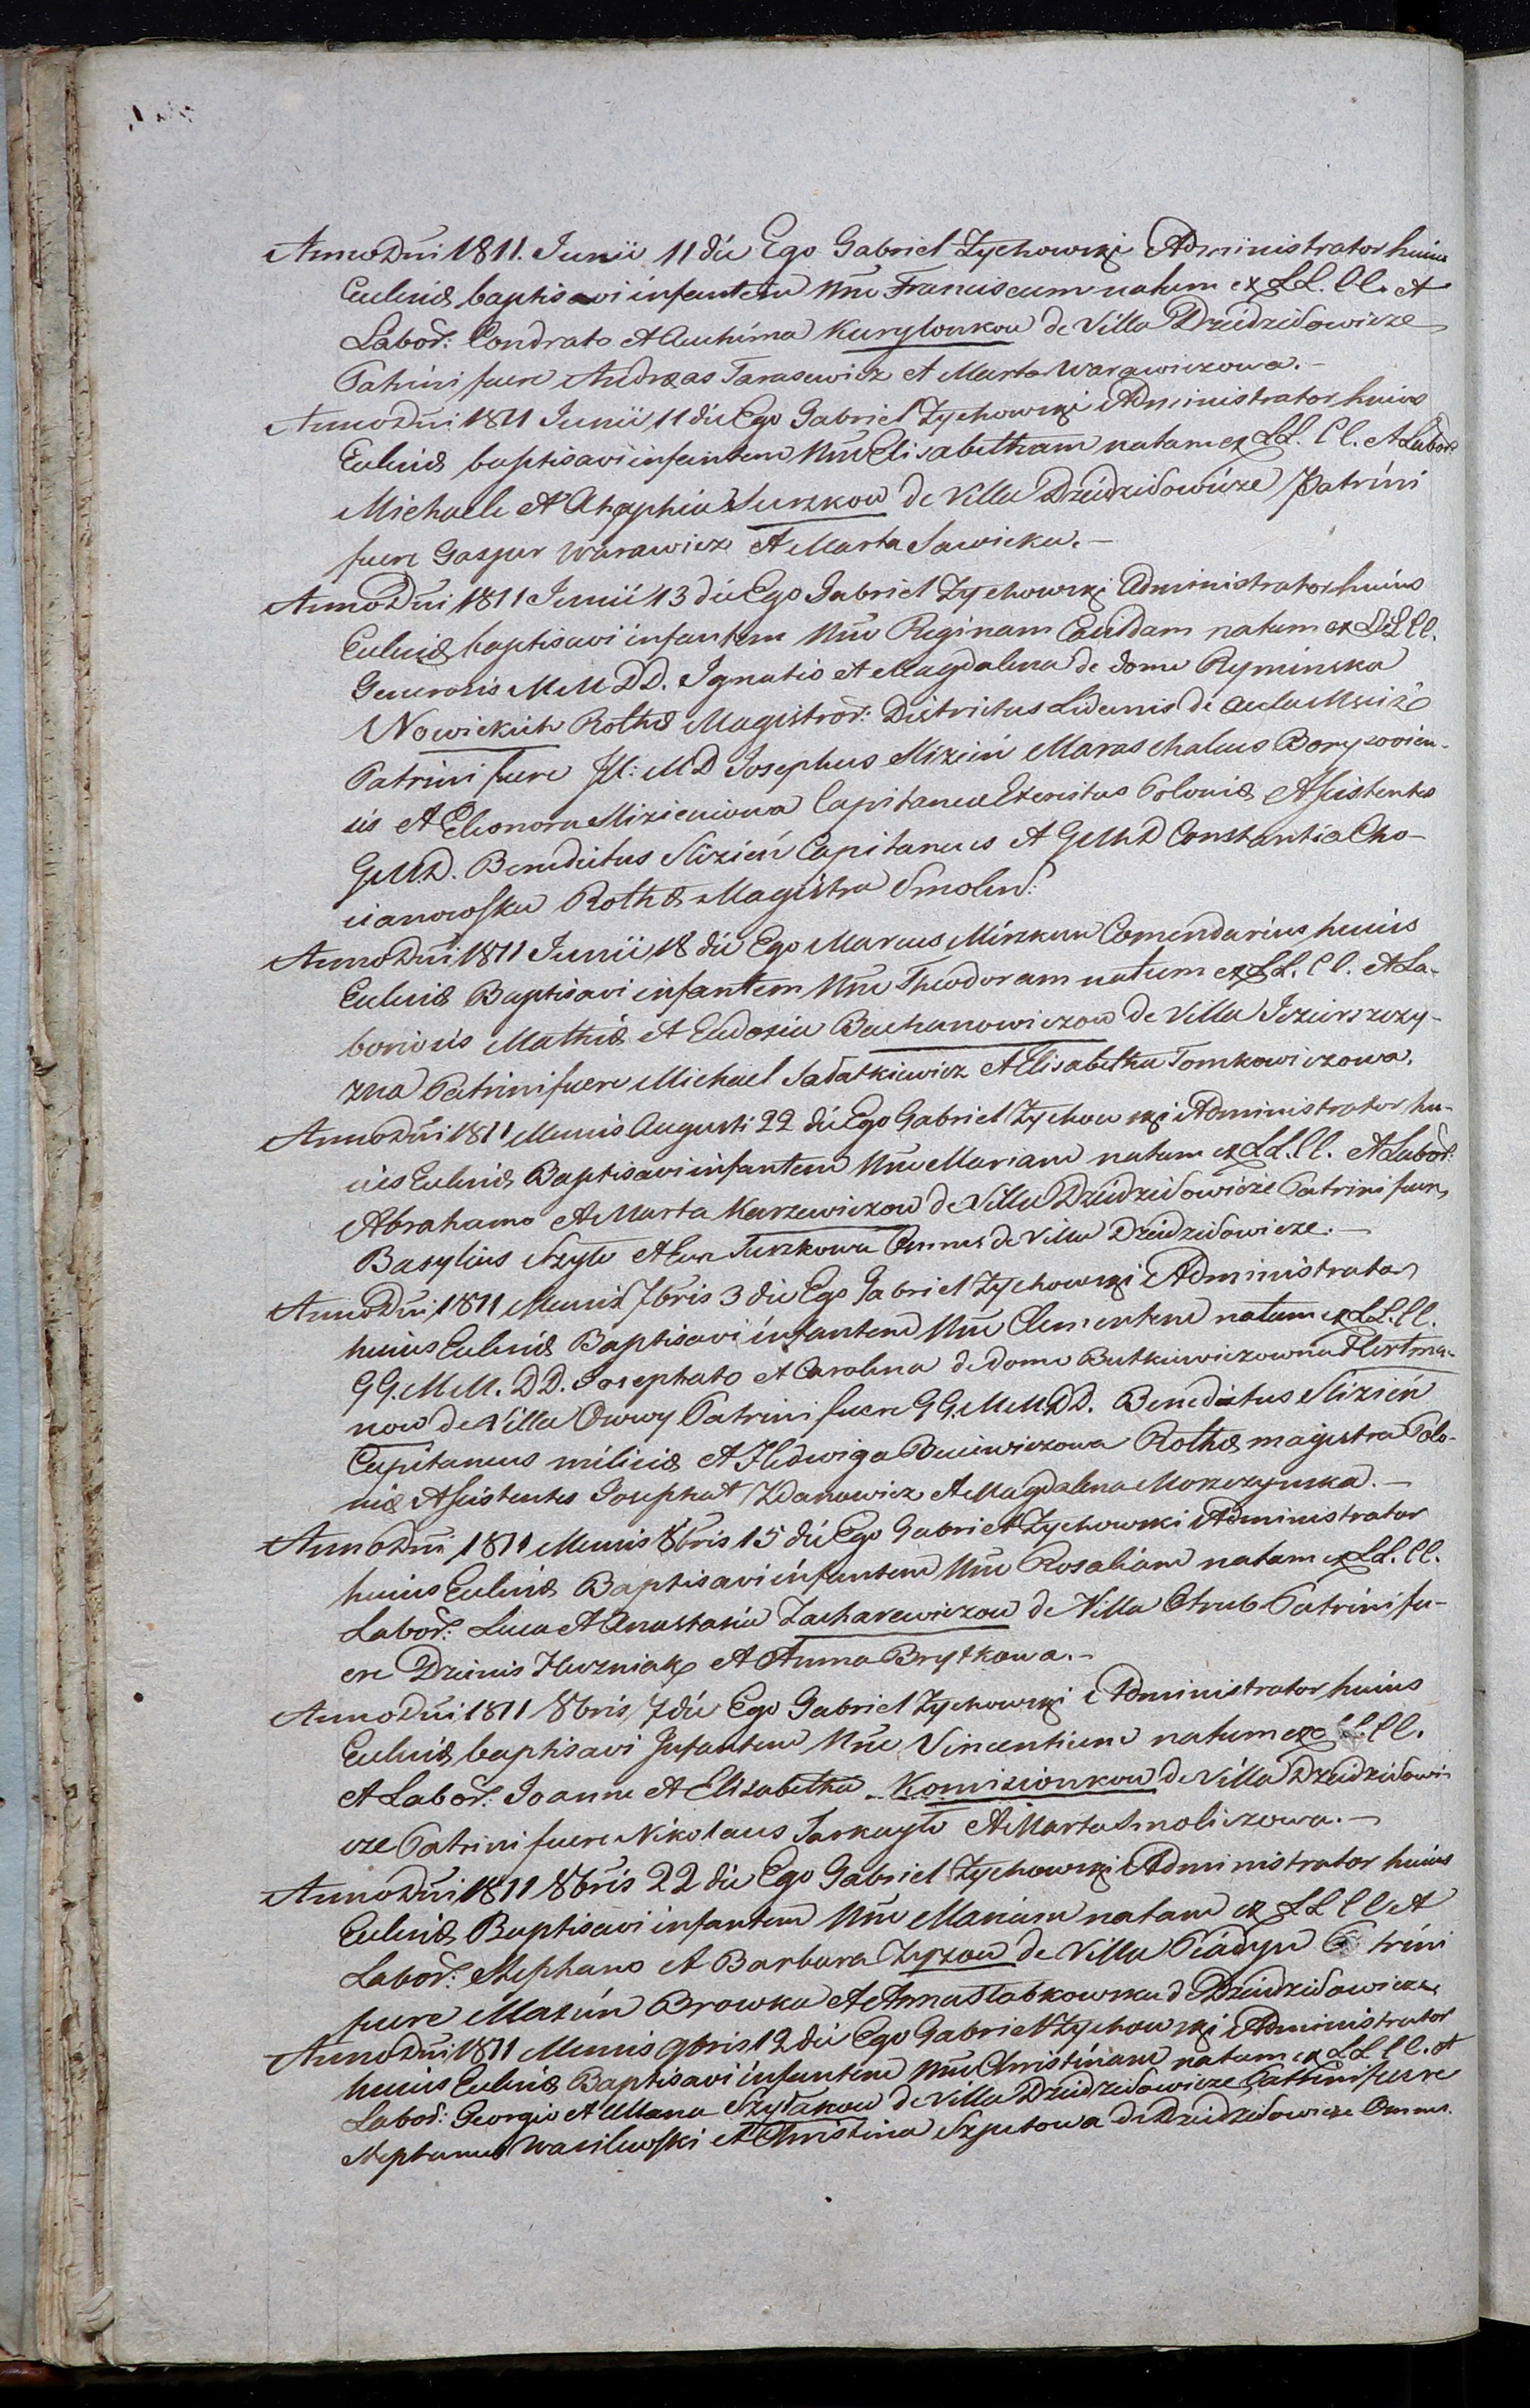 Anno Dni 1811. Junii 11 die Ego Gabriel Zychowski Administrator huius
Eccleiæ baptisavi infantem Nne Franciscum natum ex LL. CC. et
Labor: Condrato et Auchima Kurylonkow de Villa Dziedziłowicze
Patrini fuere Andreas Tarasewicz et Marta Warawiczowa.–
Anno Dni 1811 Junii 11 die Ego Gabriel Zychowski Administrator huius
Eccleiæ baptisavi infantem Nne Elisabetham natam ex LL. CC. et Labor:
Michaele et Ahaphia Surzkow de Villa Dziedziłowicze Patrini
fuere Gaspar Warawicz et Marta Sawicka.–
Anno Dni 1811 Junii 13 die Ego Gabriel Zychowski Administrator huius
Eccleiæ baptisavi infantem Nne Reginam natam ex LL CC.
Generosis MM DD. Ignatio et Magdalena de domo Ryminska
Nowickich Rothæ Magistror: Districtus Lidensis de aula
Patrini fuere Jll: MD Josephus Slizień Maraschalcus Boryssovien-
sis et Eleonora Slizieniowa Capitanea Exercitus Poloniæ Assistentes
GMD. Benedictus Slizień Capitaneus et GMD Constantia Cho-
cianowska Rothæ Magistra Smolens:
Anno Dni 1811 Junii 18 die Ego Marcus Mirzkun Comendarius huius
Eccleiæ Baptisavi infantem Nne Theodoram natam ex LL. CC. et La-
boriosis Mathia et Eudoxia Bachanowiczow de Villa Jezierszczy-
zna Patrini fuere Michael Sałatkiewicz et Elisabetha Tomkowiczowa.
Anno Dni 1811 Mensis Augusti 22 die Ego Gabriel Zychowski Administrator hu-
ius Eccleiæ Baptisavi infantem Nne Mariam natam ex LL. CC. et Labor:
Abrahamo et Marta Karzewiczow de Villa Dziedziłowicze Patrini fuere
Basylius Szyło et Eva Surzkowa Omnes de Villa Dziedziłowicze.–
Anno Dni 1811 Mensis 7bris 3 die Ego Gabriel Zychowski Administrator
huius Eccleiæ Baptisavi infantem Nne Clementem natum ex LL. CC.
GG. MM. DD. Josephato et Carolina de domo Butkiewiczowna Hertma-
now de Villa Patrini fuere GG. MM. DD. Benedictus Slizień
Capitaneus miliciæ et Hedwiga Rothæ magistra Polo-
niæ Assistentes Josephat Zdanowicz et Magdalena Morzczynska.–
Anno Dni 1811 Mensis 8bris 15 die Ego Gabriel Zychowski Administrator
huius Eccleiæ Baptisavi infantem Nne Rosaliam natam ex LL. CC.
Labor: Luca et Anastasia Zacharewiczow de Villa Otrub Patrini fu-
ere Dzienis Huzniak et Anna Brytkowa.–
Anno Dni 1811 8bris 7 die Ego Gabriel Zychowski Administrator huius
Eccleiæ baptisavi Infantem Nne Vincentium natum ex LL. CC.
et Labor: Joanne et Elisabetha Komizionkow de Villa Dziedziłowi-
cze Patrini fuere Nikolaus Tarkayło et Marta Smoliczowa.–
Anno Dni 1811 8bris 22 die Ego Gabriel Zychowski Administrator huius
Eccleiæ Baptisavi infantem Nne Mariam natam ex LL CC et
Labor: Stephano et Barbara Zyzow de Villa Patrini
fuere Maxim Browka et Anna Słabkowska d Dziedziłowicze.
Anno Dni 1811 Mensis 9bris 12 die Ego Gabriel Zychowski Administrator
huius Eccleiæ Baptisavi infantem Nne Christinam natam ex LL CC. et
Labor: Georgio et Ullana Szyłakow de Villa Dziedziłowicze Patrini fuere
Stephanus Wasilewski et Christina Szyutowa de Dziedziłowicze Omnes.